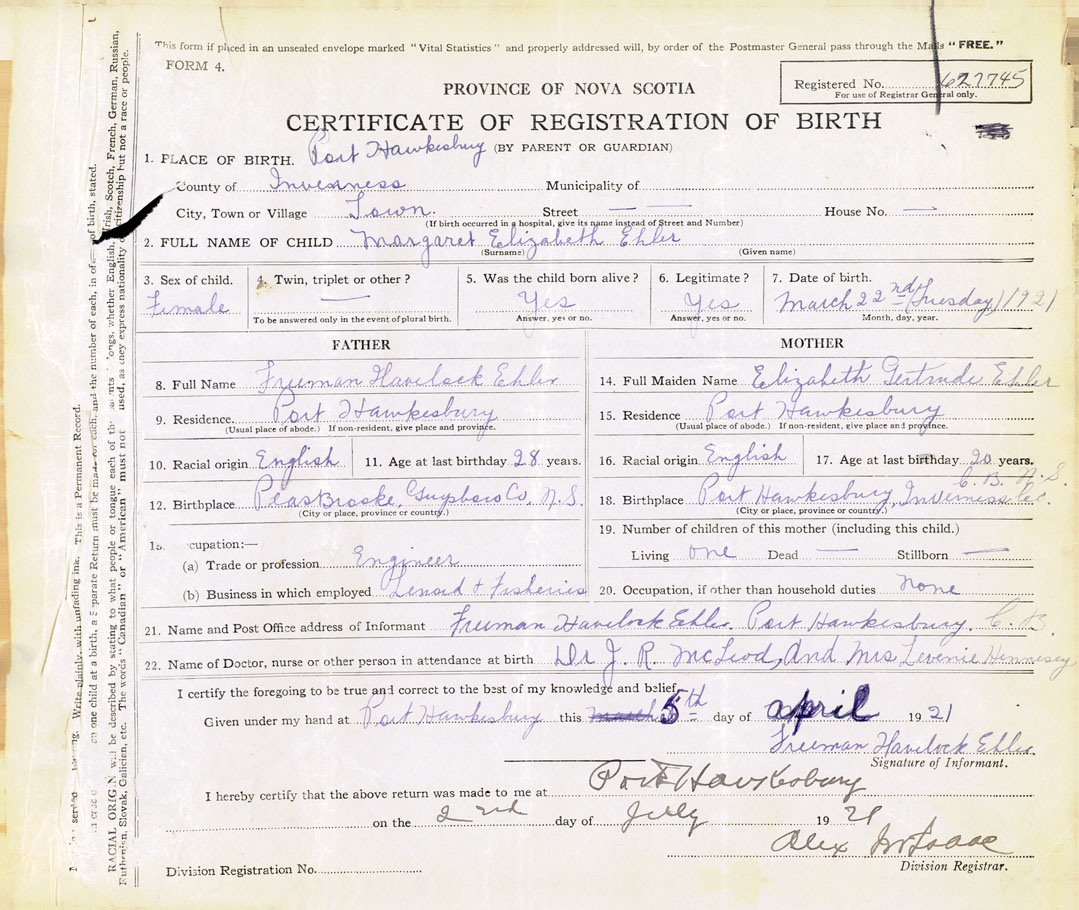 This form if placed in an unsealed envelope marked "Vital Statistics" and properly addressed will, by order of the Postmaster General pass through the Mails "FREE."
FORM 4.
Registered No. 627745
For use of Registrar General only.
PROVINCE OF NOVA SCOTIA
CERTIFICATE OF REGISTRATION OF BIRTH
(BY PARENT OR GUARDIAN)
1. PLACE OF BIRTH. Port Hawkesbury
County of Inverness Municipality of —
City, Town or Village Town. Street — — House No. —
(If birth occurred in a hospital, give its name instead of Street and Number)
2. FULL NAME OF CHILD Margaret Elizabeth Ehler
(Surname) (Given name)
3. Sex of child. Female
4. Twin, triplet or other? —
To be answered only in the event of plural birth.
5. Was the child born alive? Yes
Answer, yes or no.
6. Legitimate? Yes
Answer, yes or no.
7. Date of birth. March 22nd (Tuesday) 1921
Month, day, year.
FATHER
8. Full Name Freeman Havelock Ehler
9. Residence. Port Hawkesbury
(Usual place of abode.) If non-resident, give place and province.
10. Racial origin English 11. Age at last birthday 28 years.
12. Birthplace Guysboro Co, N.S.
(City or place, province or country.)
13. Occupation:—
(a) Trade or profession Engineer
(b) Business in which employed + Fisheries
MOTHER
14. Full Maiden Name Elizabeth Gertrude Ehler
15. Residence Port Hawkesbury
(Usual place of abode.) If non-resident, give place and province.
16. Racial origin English 17. Age at last birthday 20 years.
18. Birthplace Port Hawkesbury, Inverness Co. C.B. N.S.
(City or place, province or country.)
19. Number of children of this mother (including this child.)
Living one Dead — Stillborn —
20. Occupation, if other than household duties None
21. Name and Post Office address of Informant Freeman Havelock Ehler. Port Hawkesbury. C.B.
22. Name of Doctor, nurse or other person in attendance at birth Dr J. R. McLeod, And Mrs Levenie Hennesey
I certify the foregoing to be true and correct to the best of my knowledge and belief.
Given under my hand at Port Hawkesbury this March 5th day of april 1921
Freeman Havelock Ehler.
Signature of Informant.
I hereby certify that the above return was made to me at Port Hawkesbury
on the 2nd day of July 1921
Alex McIsaac
Division Registrar.
Division Registration No.
Write plainly with unfading ink. This is a Permanent Record.
one child at a birth, a Separate Return must be made for each, and the number of each, in of birth, stated.
RACIAL ORIGIN will be described by stating to what people or tongue each of the belongs, whether English, Irish, Scotch, French, German, Russian,
Ruthenian, Slovak, Galician, etc. The words "Canadian" or "American" must not used, as they express nationality citizenship but not a race or people.